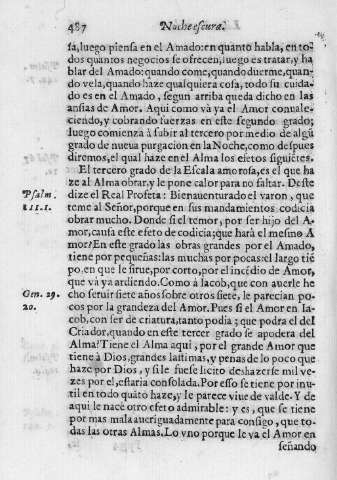 487 Noche escura.
sa, luego piensa en el Amado: en quanto habla, en to-
dos quantos negocios se ofrecen, luego es tratar, y ha
blar del Amado: quando come, quando duerme, quan-
do vela, quando haze qualquiera cosa, todo su cuida-
do es en el Amado, segun arriba queda dicho en las
ansias de Amor. Aqui como và ya el Amor convale-
ciendo, y cobrando fuerzas en este segundo grado;
luego comienza à subir al tercero por medio de algũ
grado de nueva purgacion en la Noche, como despues
diremos, el qual haze en el Alma los efetos siguiẽtes.
El tercero grado de la Escala amorosa, es el que ha
ze al Alma obrar, y le pone calor para no faltar. Deste
Psalm.
111.1.
dize el Real Profeta: Bienaventurado el varon, que
teme al Señor, porque en sus mandamientos codicia
obrar mucho. Donde si el temor, por ser hijo del A-
mor, causa este efeto de codicia; que harà el mesmo A
mor? En este grado las obras grandes por el Amado,
tiene por pequeñas: las muchas por pocas: el largo tiẽ
po, en que le sirue, por corto, por el incẽdio de Amor,
Gen. 29.
20.
que và ya ardiendo. Como à Iacob, que con averle he
cho seruir siete años sobre otros siete, le parecian po-
cos por la grandeza del Amor. Pues si el Amor en Ia-
cob, con ser de criatura, tanto podia; que podra el del
Criador, quando en este tercer grado se apodera del
Alma? Tiene el Alma aqui, por el grande Amor que
tiene à Dios, grandes lastimas, y penas de lo poco que
haze por Dios, y si le fuese licito deshazerse mil ve-
zes por el, estaria consolada. Por esso se tiene por inu-
til en todo quãto haze, y le parece viue de valde. Y de
aqui le nace otro efeto admirable: y es, que se tiene
por mas mala aueriguadamente para consigo, que to-
das las otras Almas. Lo vno porque le va el Amor en
señando